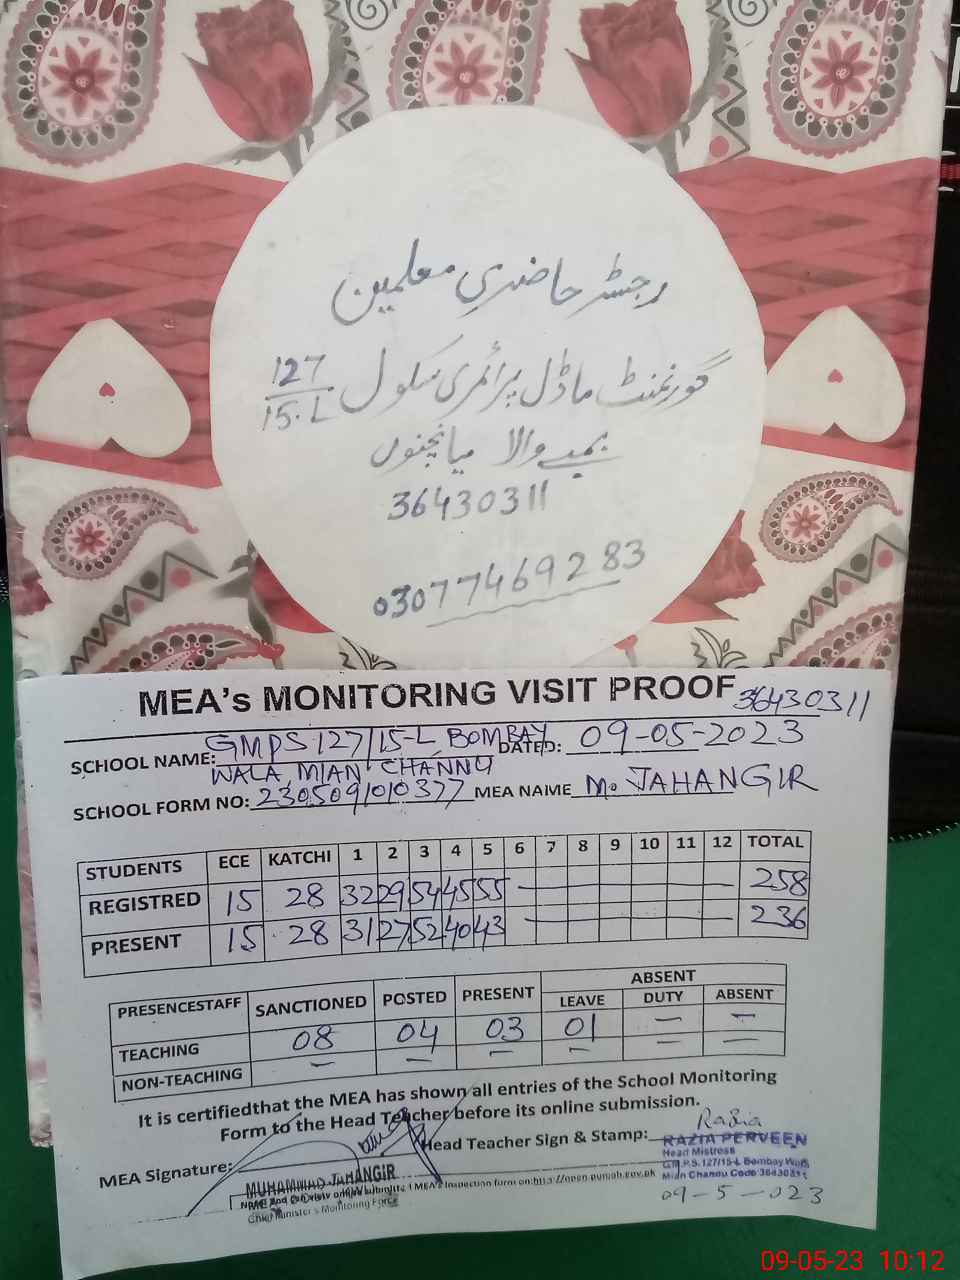 رجسٹر حاضری معلمین
گورنمنٹ ماڈل پرائمری سکول 127/15.L
بمبے والا میانچنوں
36430311
03077469283
MEA's MONITORING VISIT PROOF 36430311
SCHOOL NAME: GMPS 127/15-L, BOMBAY DATED: 09-05-2023
WALA, MIAN CHANNU
SCHOOL FORM NO: 2305091010377 MEA NAME M. JAHANGIR
STUDENTS ECE KATCHI 1 2 3 4 5 6 7 8 9 10 11 12 TOTAL
REGISTRED 15 28 32 29 54 45 55 258
PRESENT 15 28 31 27 52 40 43 236
PRESENCESTAFF SANCTIONED POSTED PRESENT ABSENT
LEAVE DUTY ABSENT
TEACHING 08 04 03 01 — —
NON-TEACHING — — — — — —
It is certifiedthat the MEA has shown all entries of the School Monitoring
Form to the Head Teacher before its online submission.
MEA Signature: Head Teacher Sign & Stamp: Razia
RAZIA PERVEEN
Head Mistress
G.M.P.S. 127/15-L Bombay Wala
Mian Channu Code 36430311
09-5-023
MUHAMMAD JAHANGIR
MEA's Inspection form on:
Chief Minister's Monitoring Force
09-05-23 10:12